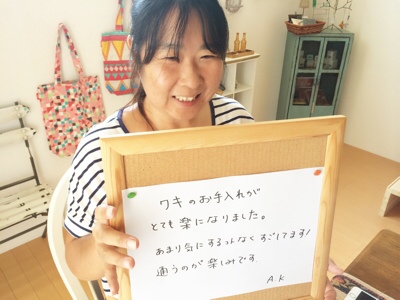 ワキのお手入れが
とても楽になりました。
あまり気にするコトなくすごしてます!
通うのが楽しみです
A.K